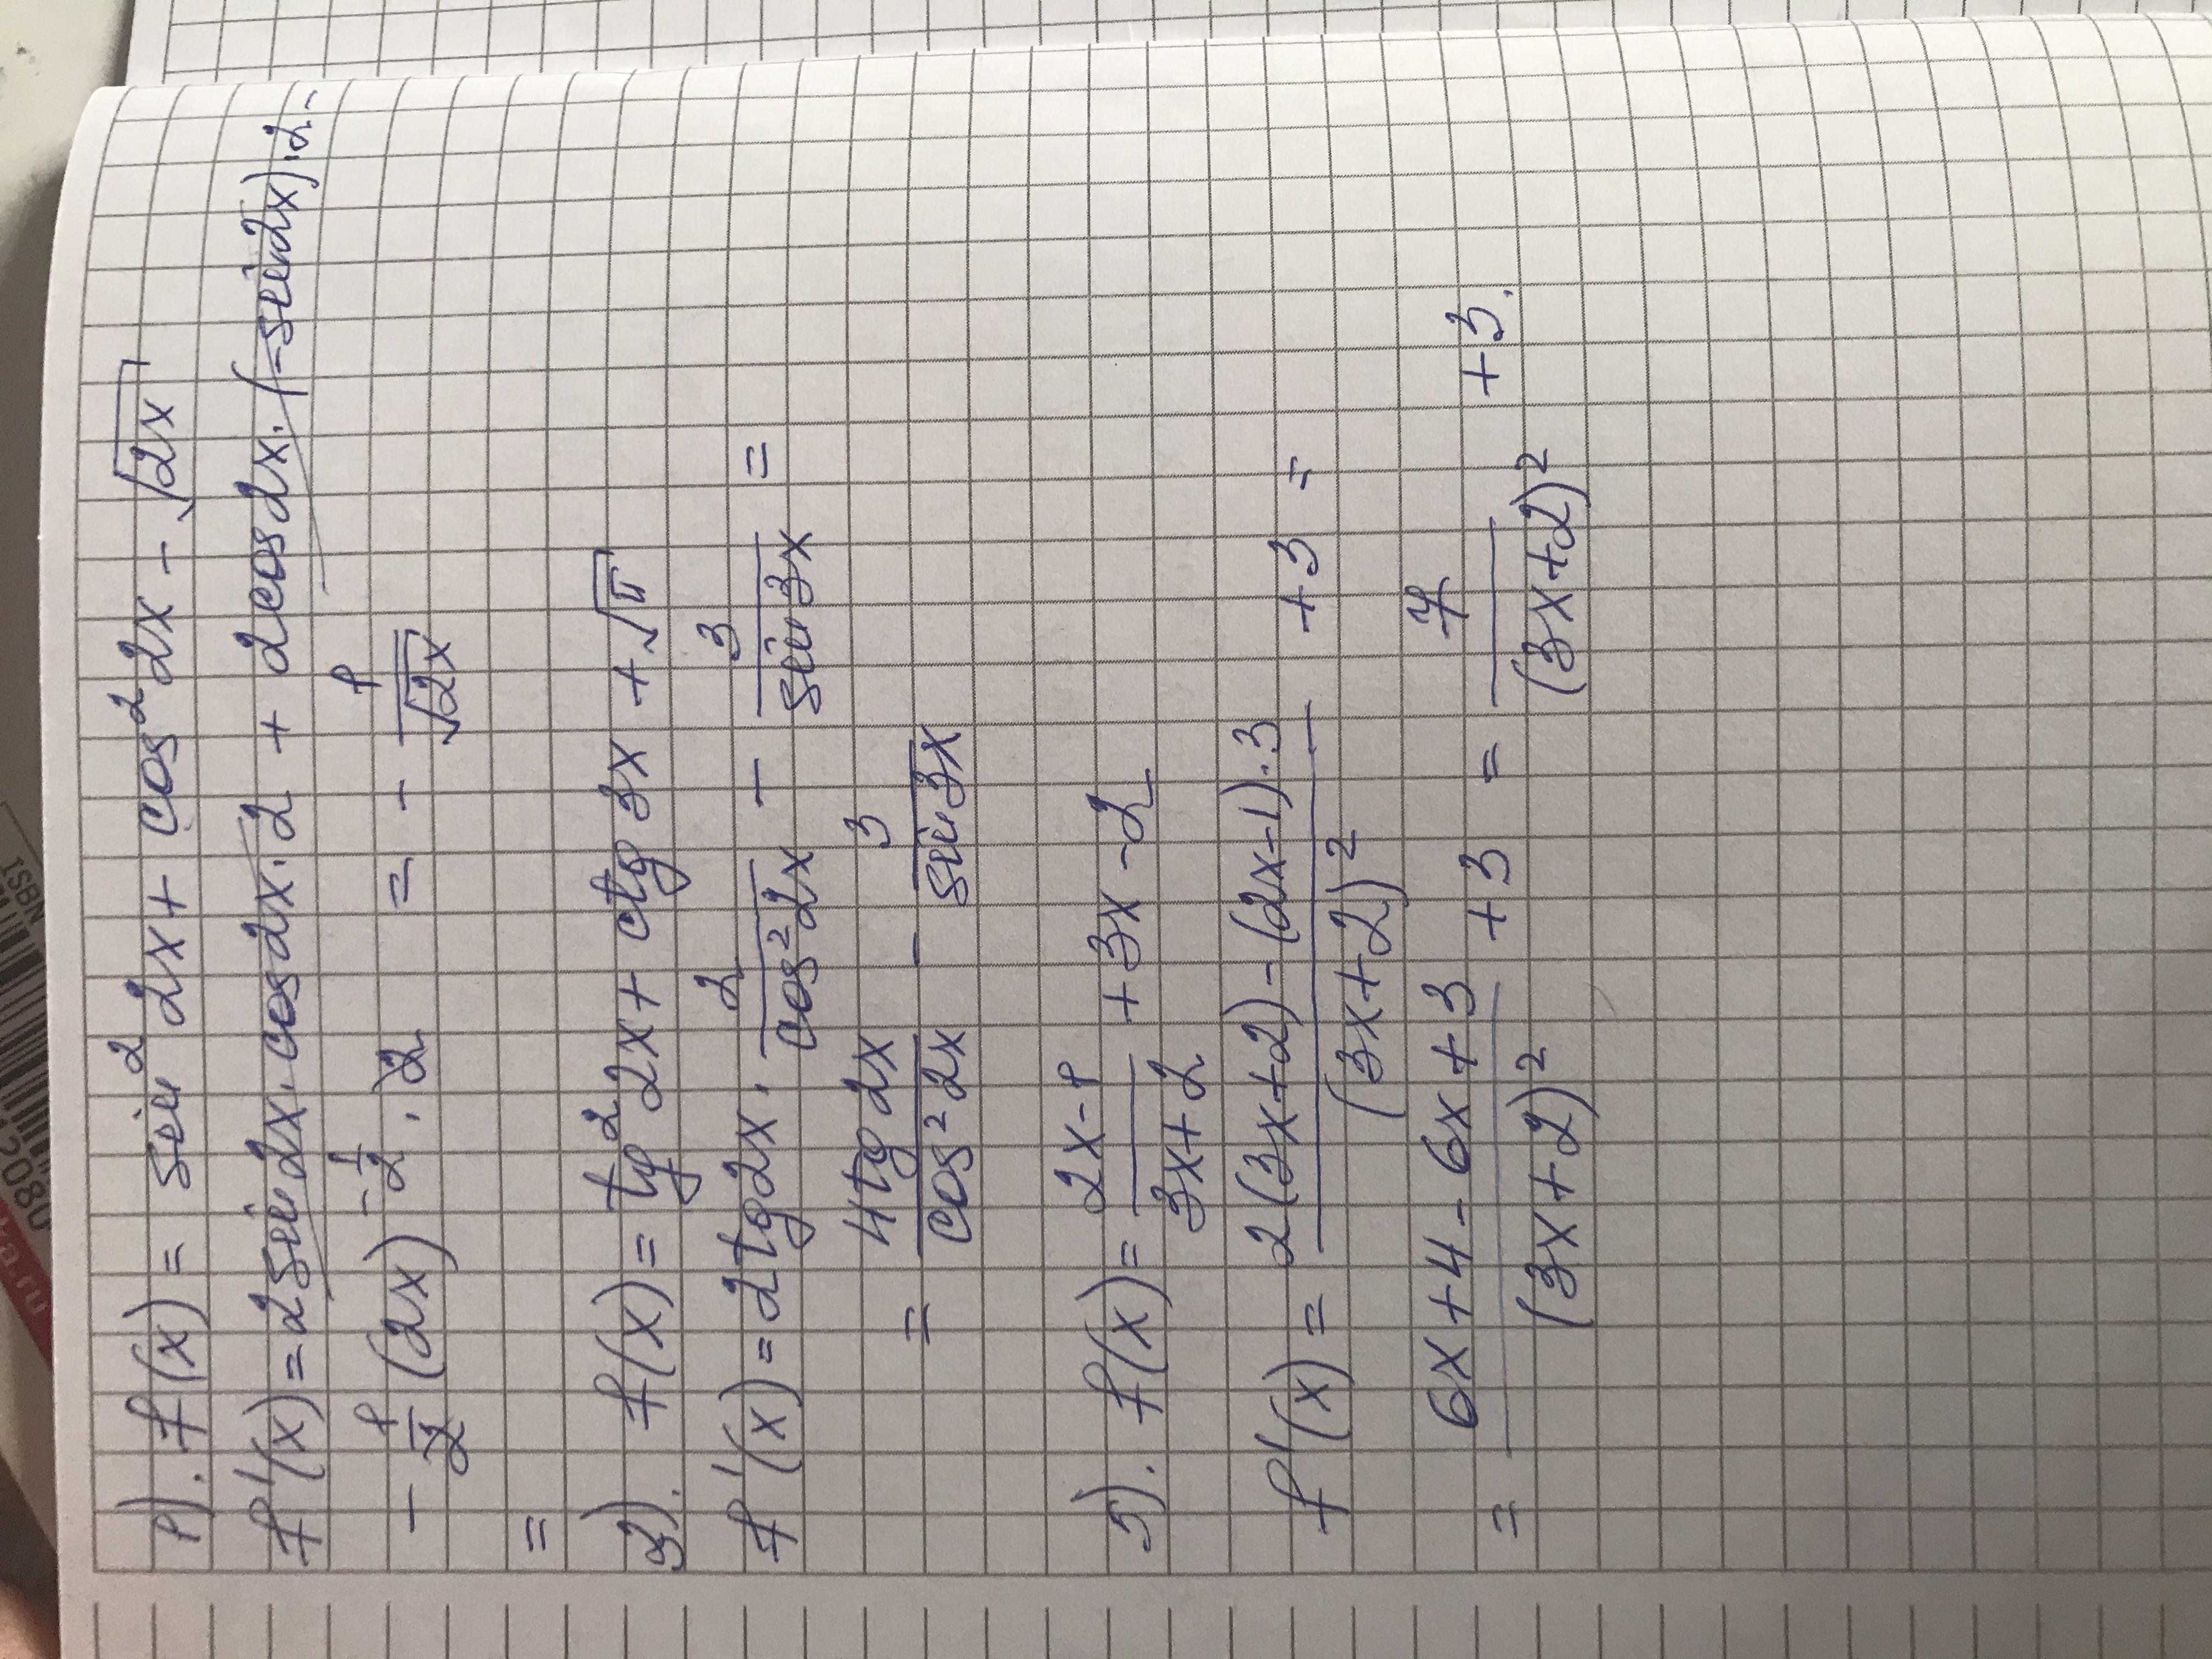 1). f(x) = sin² 2x + cos² 2x - √2x
f'(x) = 2 sin 2x · cos 2x · 2 + 2 cos 2x · (-sin 2x) · 2 -
- 1/2 (2x)^(-1/2) · 2 = - 1/√2x
=
3). f(x) = tg² 2x + ctg 3x + √π
f'(x) = 2 tg 2x · 2/cos² 2x - 3/sin 3x =
= 4 tg 2x/cos² 2x - 3/sin 3x
5). f(x) = (2x-1)/(3x+2) + 3x - 2
f'(x) = (2(3x+2) - (2x-1)·3)/(3x+2)² + 3 =
= (6x+4 - 6x+3)/(3x+2)² + 3 = 7/(3x+2)² + 3.
ISBN
12080
ka.ru